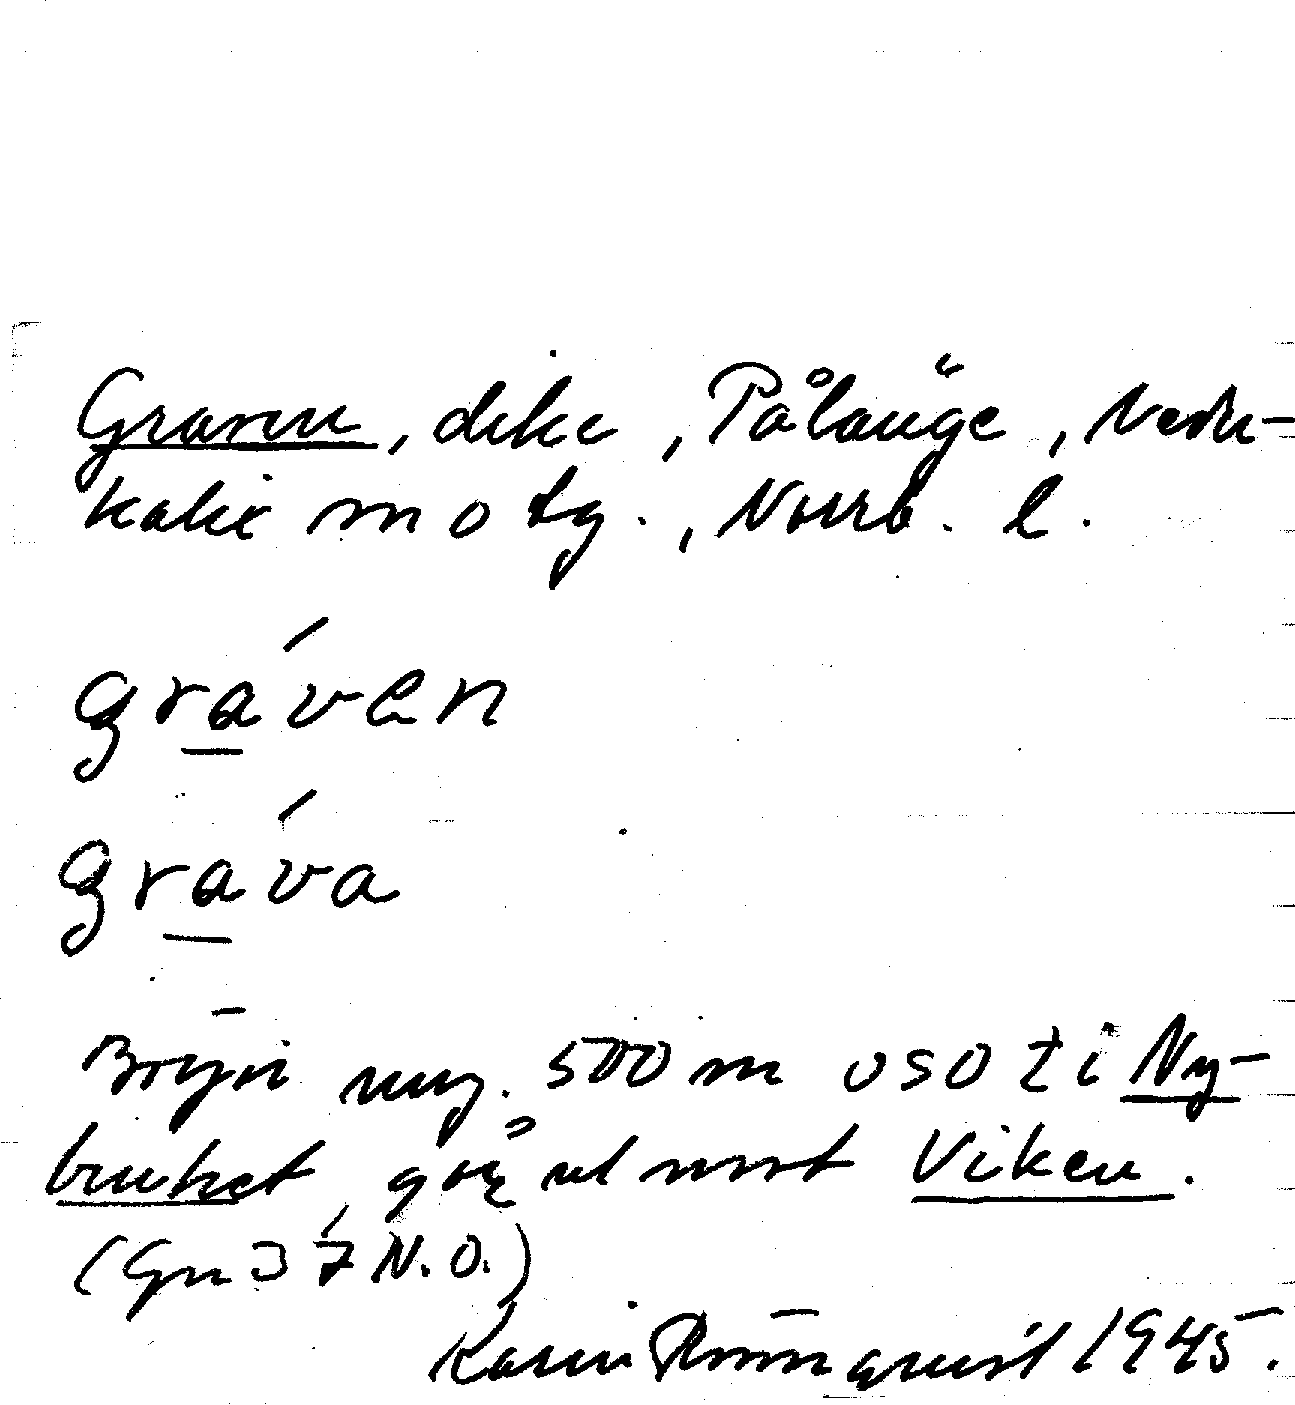 Graven, dike, Pålänge, Neder-
kalix m o tg., Norrb. l.
gráven
gráva
Börjar ung. 500 m oso t i Ny-
bruket, går ut mot Viken.
(Gn 37 N.O.)
Karin Rönnqvist 1945.